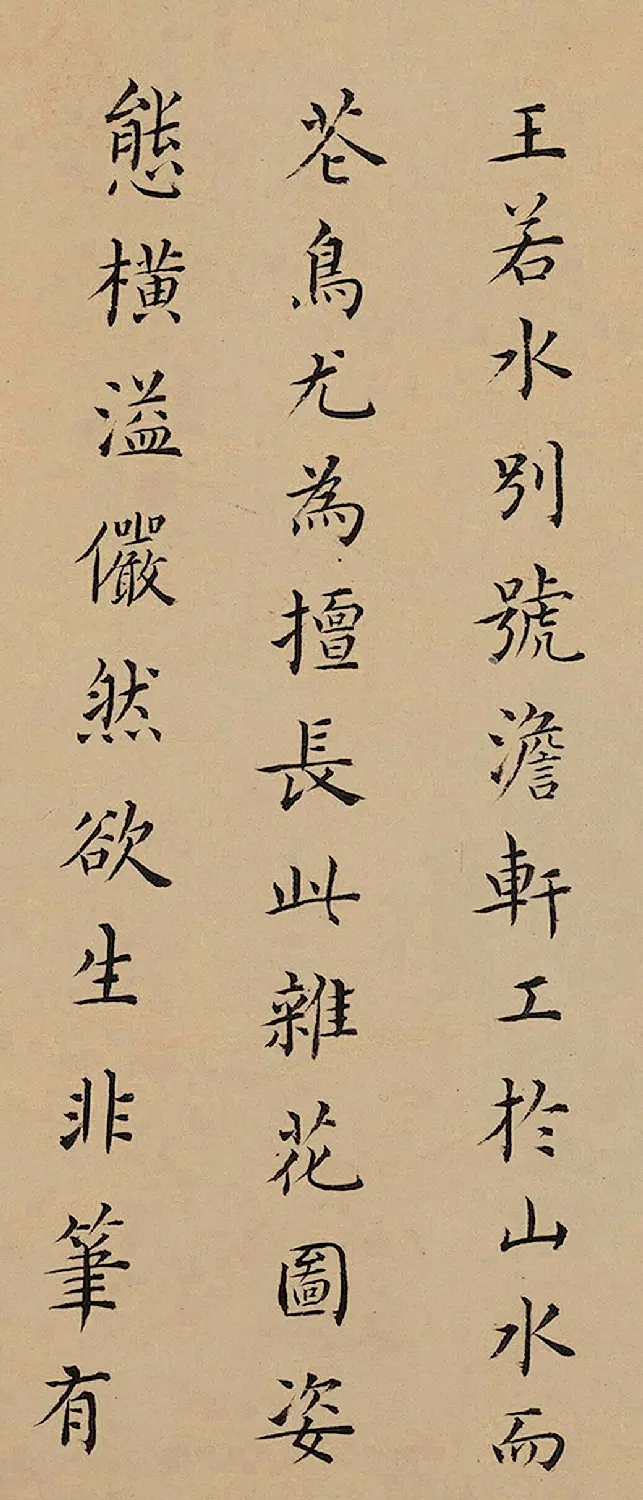 王若水別號澹軒工於山水而
花鳥尤為擅長此雜花圖姿
態橫溢儼然欲生非筆有